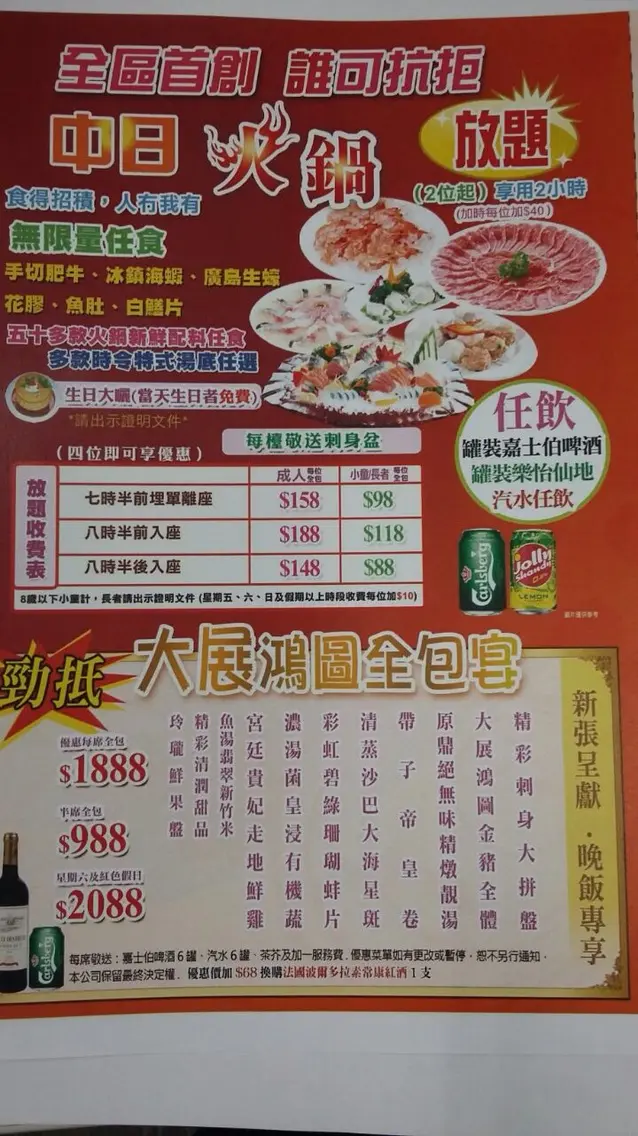 全區首創 誰可抗拒
中日火鍋 放題
(2位起)享用2小時
(加時每位加$40)
食得招積，人冇我有
無限量任食
手切肥牛、冰鎮海蝦、廣島生蠔
花膠、魚肚、白鱔片
五十多款火鍋新鮮配料任食
多款時令特式湯底任選
生日大曬(當天生日者免費)
*請出示證明文件*
任飲
罐裝嘉士伯啤酒
罐裝樂怡仙地
汽水任飲
每檯敬送刺身盆
(四位即可享優惠)
放題收費表
成人 每位全包 小童/長者 每位全包
七時半前埋單離座 $158 $98
八時半前入座 $188 $118
八時半後入座 $148 $88
8歲以下小童計，長者請出示證明文件 (星期五、六、日及假期以上時段收費每位加$10)
Carlsberg
Jolly Shandy
LEMON
圖片僅供參考
勁抵
大展鴻圖全包宴
新張呈獻・晚飯專享
精彩刺身大拼盤
大展鴻圖金豬全體
原鼎絕無味精燉靚湯
帶子帝皇卷
清蒸沙巴大海星斑
彩虹碧綠珊瑚蚌片
濃湯菌皇浸有機蔬
宮廷貴妃走地鮮雞
魚湯翡翠新竹米
精彩清潤甜品
玲瓏鮮果盤
優惠每席全包
$1888
半席全包
$988
星期六及紅色假日
$2088
Carlsberg
每席敬送：嘉士伯啤酒6罐、汽水6罐、茶芥及加一服務費．優惠菜單如有更改或暫停，恕不另行通知．
本公司保留最終決定權．優惠價加 $68 換購法國波爾多拉素常康紅酒 1 支